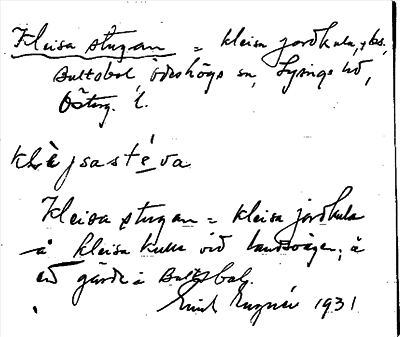 Kleisa stugan = kleisa jordkula, ybs,
Bultsbol Ödeshögs sn, Lysings hd,
Österg. l.
klèjsastéva
Kleisa stugan = kleisa jordkula
å kleisa kulla vid landsvägen, å
ett gärde å Bultsbol.
Emil 1931